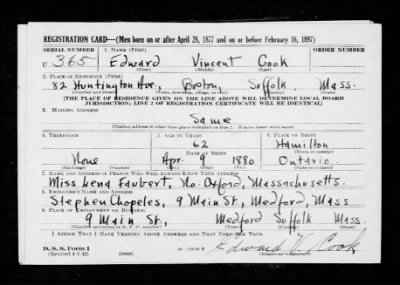 REGISTRATION CARD—(Men born on or after April 28, 1877 and on or before February 16, 1897)
SERIAL NUMBER 1. NAME (Print) ORDER NUMBER
U 365 Edward Vincent Cook
(First) (Middle) (Last)
2. PLACE OF RESIDENCE (Print)
82 Huntington Ave., Boston, Suffolk Mass.
(Number and street) (Town, township, village, or city) (County) (State)
[THE PLACE OF RESIDENCE GIVEN ON THE LINE ABOVE WILL DETERMINE LOCAL BOARD
JURISDICTION; LINE 2 OF REGISTRATION CERTIFICATE WILL BE IDENTICAL]
3. MAILING ADDRESS
Same
[Mailing address if other than place indicated on line 2. If same insert word same]
4. TELEPHONE 5. AGE IN YEARS 6. PLACE OF BIRTH
62 Hamilton
DATE OF BIRTH (Town or county)
None Apr. 9 1880 Ontario.
7. NAME AND ADDRESS OF PERSON WHO WILL ALWAYS KNOW YOUR ADDRESS
Miss Lena Faubert, No. Oxford, Massachusetts.
8. EMPLOYER'S NAME AND ADDRESS
Stephen Chopeles, 9 Main St., Medford, Mass
9. PLACE OF EMPLOYMENT OR BUSINESS
9 Main St., Medford Suffolk Mass.
(Number and street or R. F. D. number) (Town) (County) (State)
I AFFIRM THAT I HAVE VERIFIED ABOVE ANSWERS AND THAT THEY ARE TRUE.
D. S. S. Form 1
Edward V. Cook